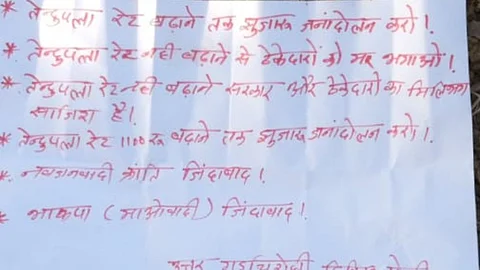 * तेन्दुपत्ता रेट बढ़ाने तक जुझारू जनांदोलन करो!
* तेन्दुपत्ता रेट नही बढ़ाने से ठेकेदारों को मार भगाओ!
* तेन्दुपत्ता रेट नही बढ़ाने सरकार और ठेकेदारो का मिलिभगत
साजिश है!
* तेन्दुपत्ता रेट 1100 रू बढ़ाने तक जुझारू जनांदोलन करो!
* नवजनवादी क्रांति जिंदाबाद!
* भाकपा (माओवादी) जिंदाबाद!
उत्तर गडचिरोली